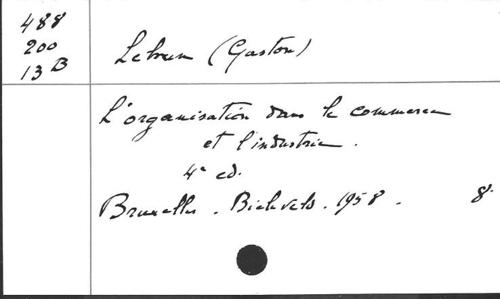 488
200
13 B
Lebrun (Gaston)
L'organisation dans le commerce
et l'industrie.
4e ed.
Bruxelles. Bieleveld. 1958. 8.